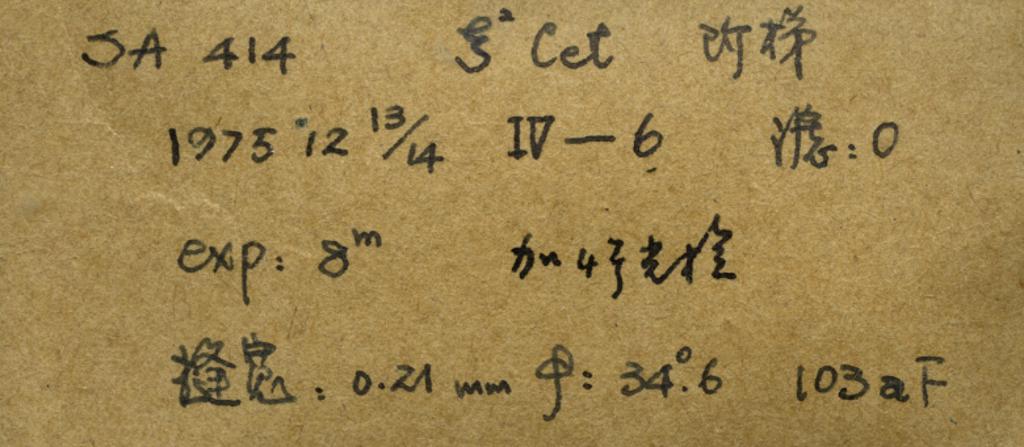 SA 414 ξ² Cet 阶梯
1975 12 13/14 IV — 6 滤: 0
exp: 8ᵐ 加4号光栏
缝宽: 0.21 mm φ: 34°.6 103aF